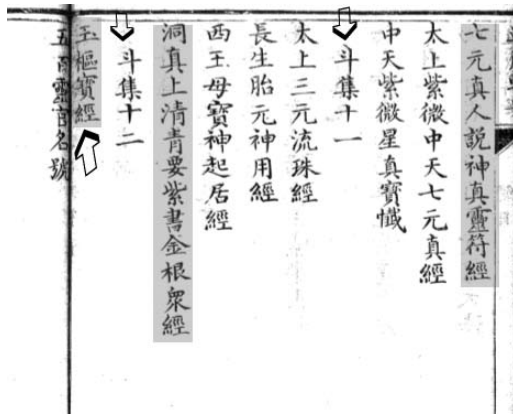 七元真人説神真靈符經
太上紫微中天七元真經
中天紫微星真寶懺
斗集十一
太上三元流珠經
長生胎元神用經
西王母寶神起居經
洞真上清青要紫書金根衆經
斗集十二
玉樞寶經
五百靈官名號